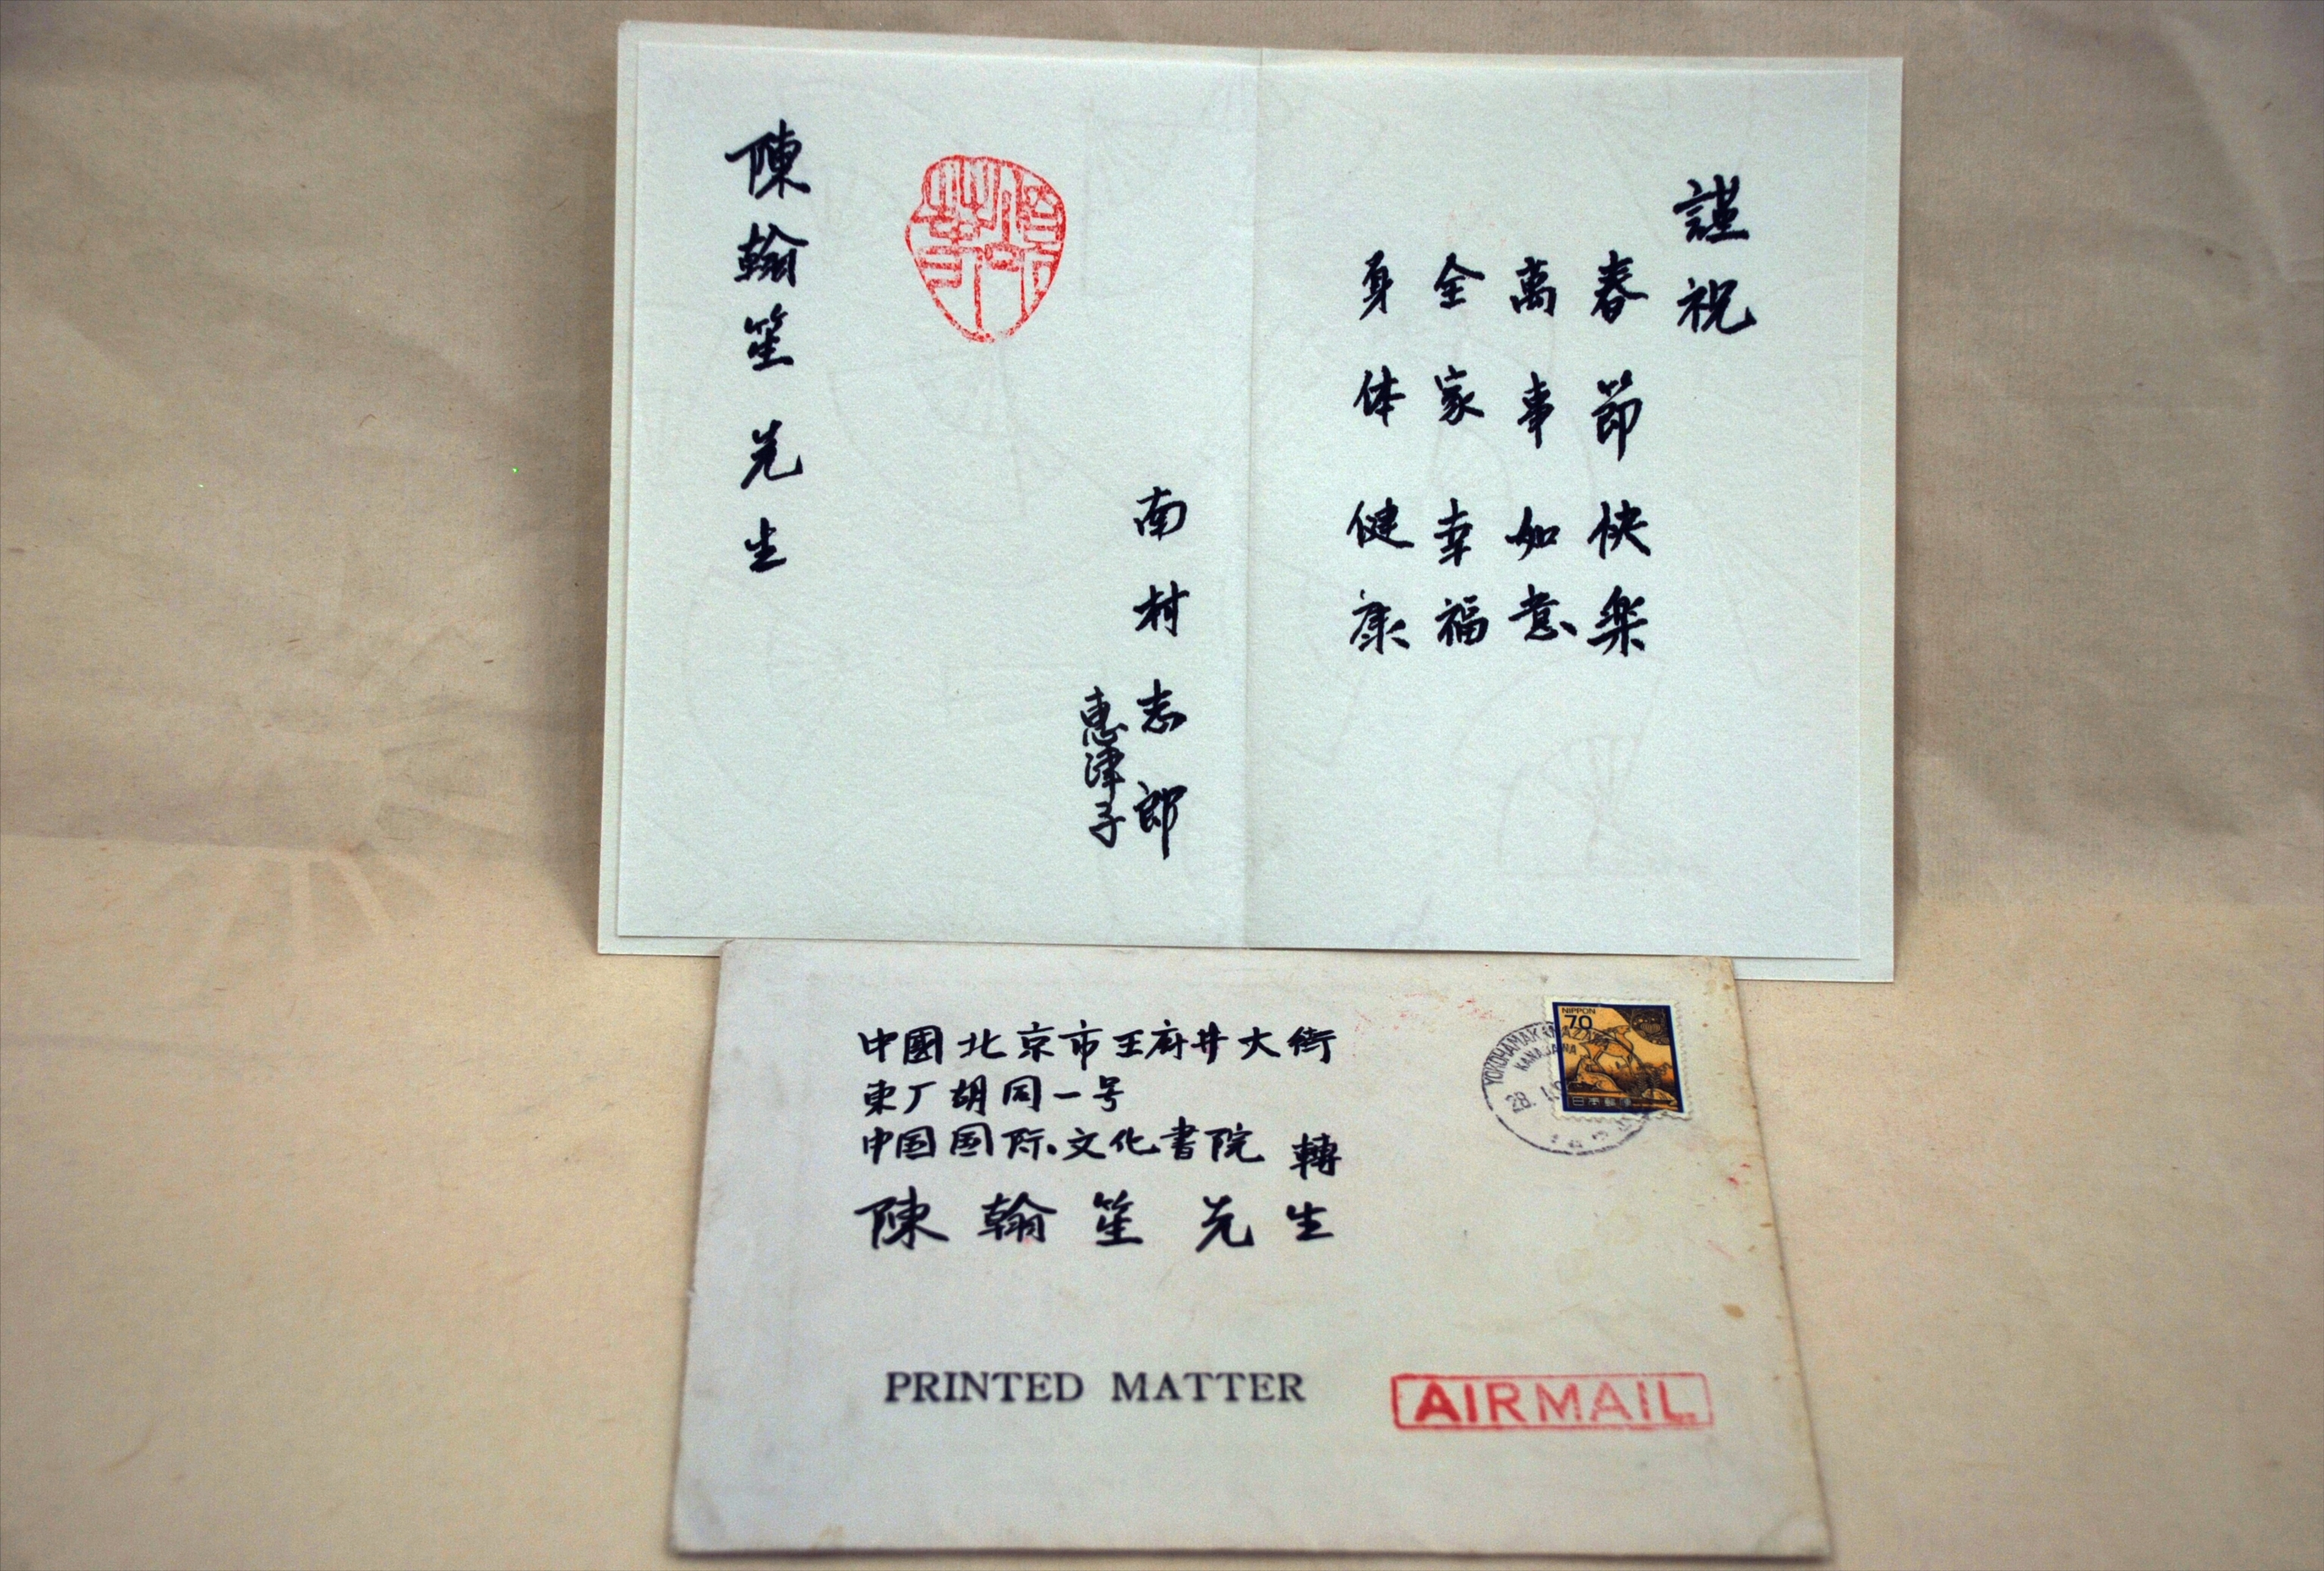 謹祝
春節快楽
萬事如意
全家幸福
身体健康
南村志郎
惠津子
陳翰笙先生
中國北京市王府井大街
東厂胡同一号
中国国际文化書院 轉
陳翰笙先生
NIPPON
70
日本郵便
YOKOHAMAKANAZAWA
KANAGAWA
28. 1.
PRINTED MATTER
AIRMAIL